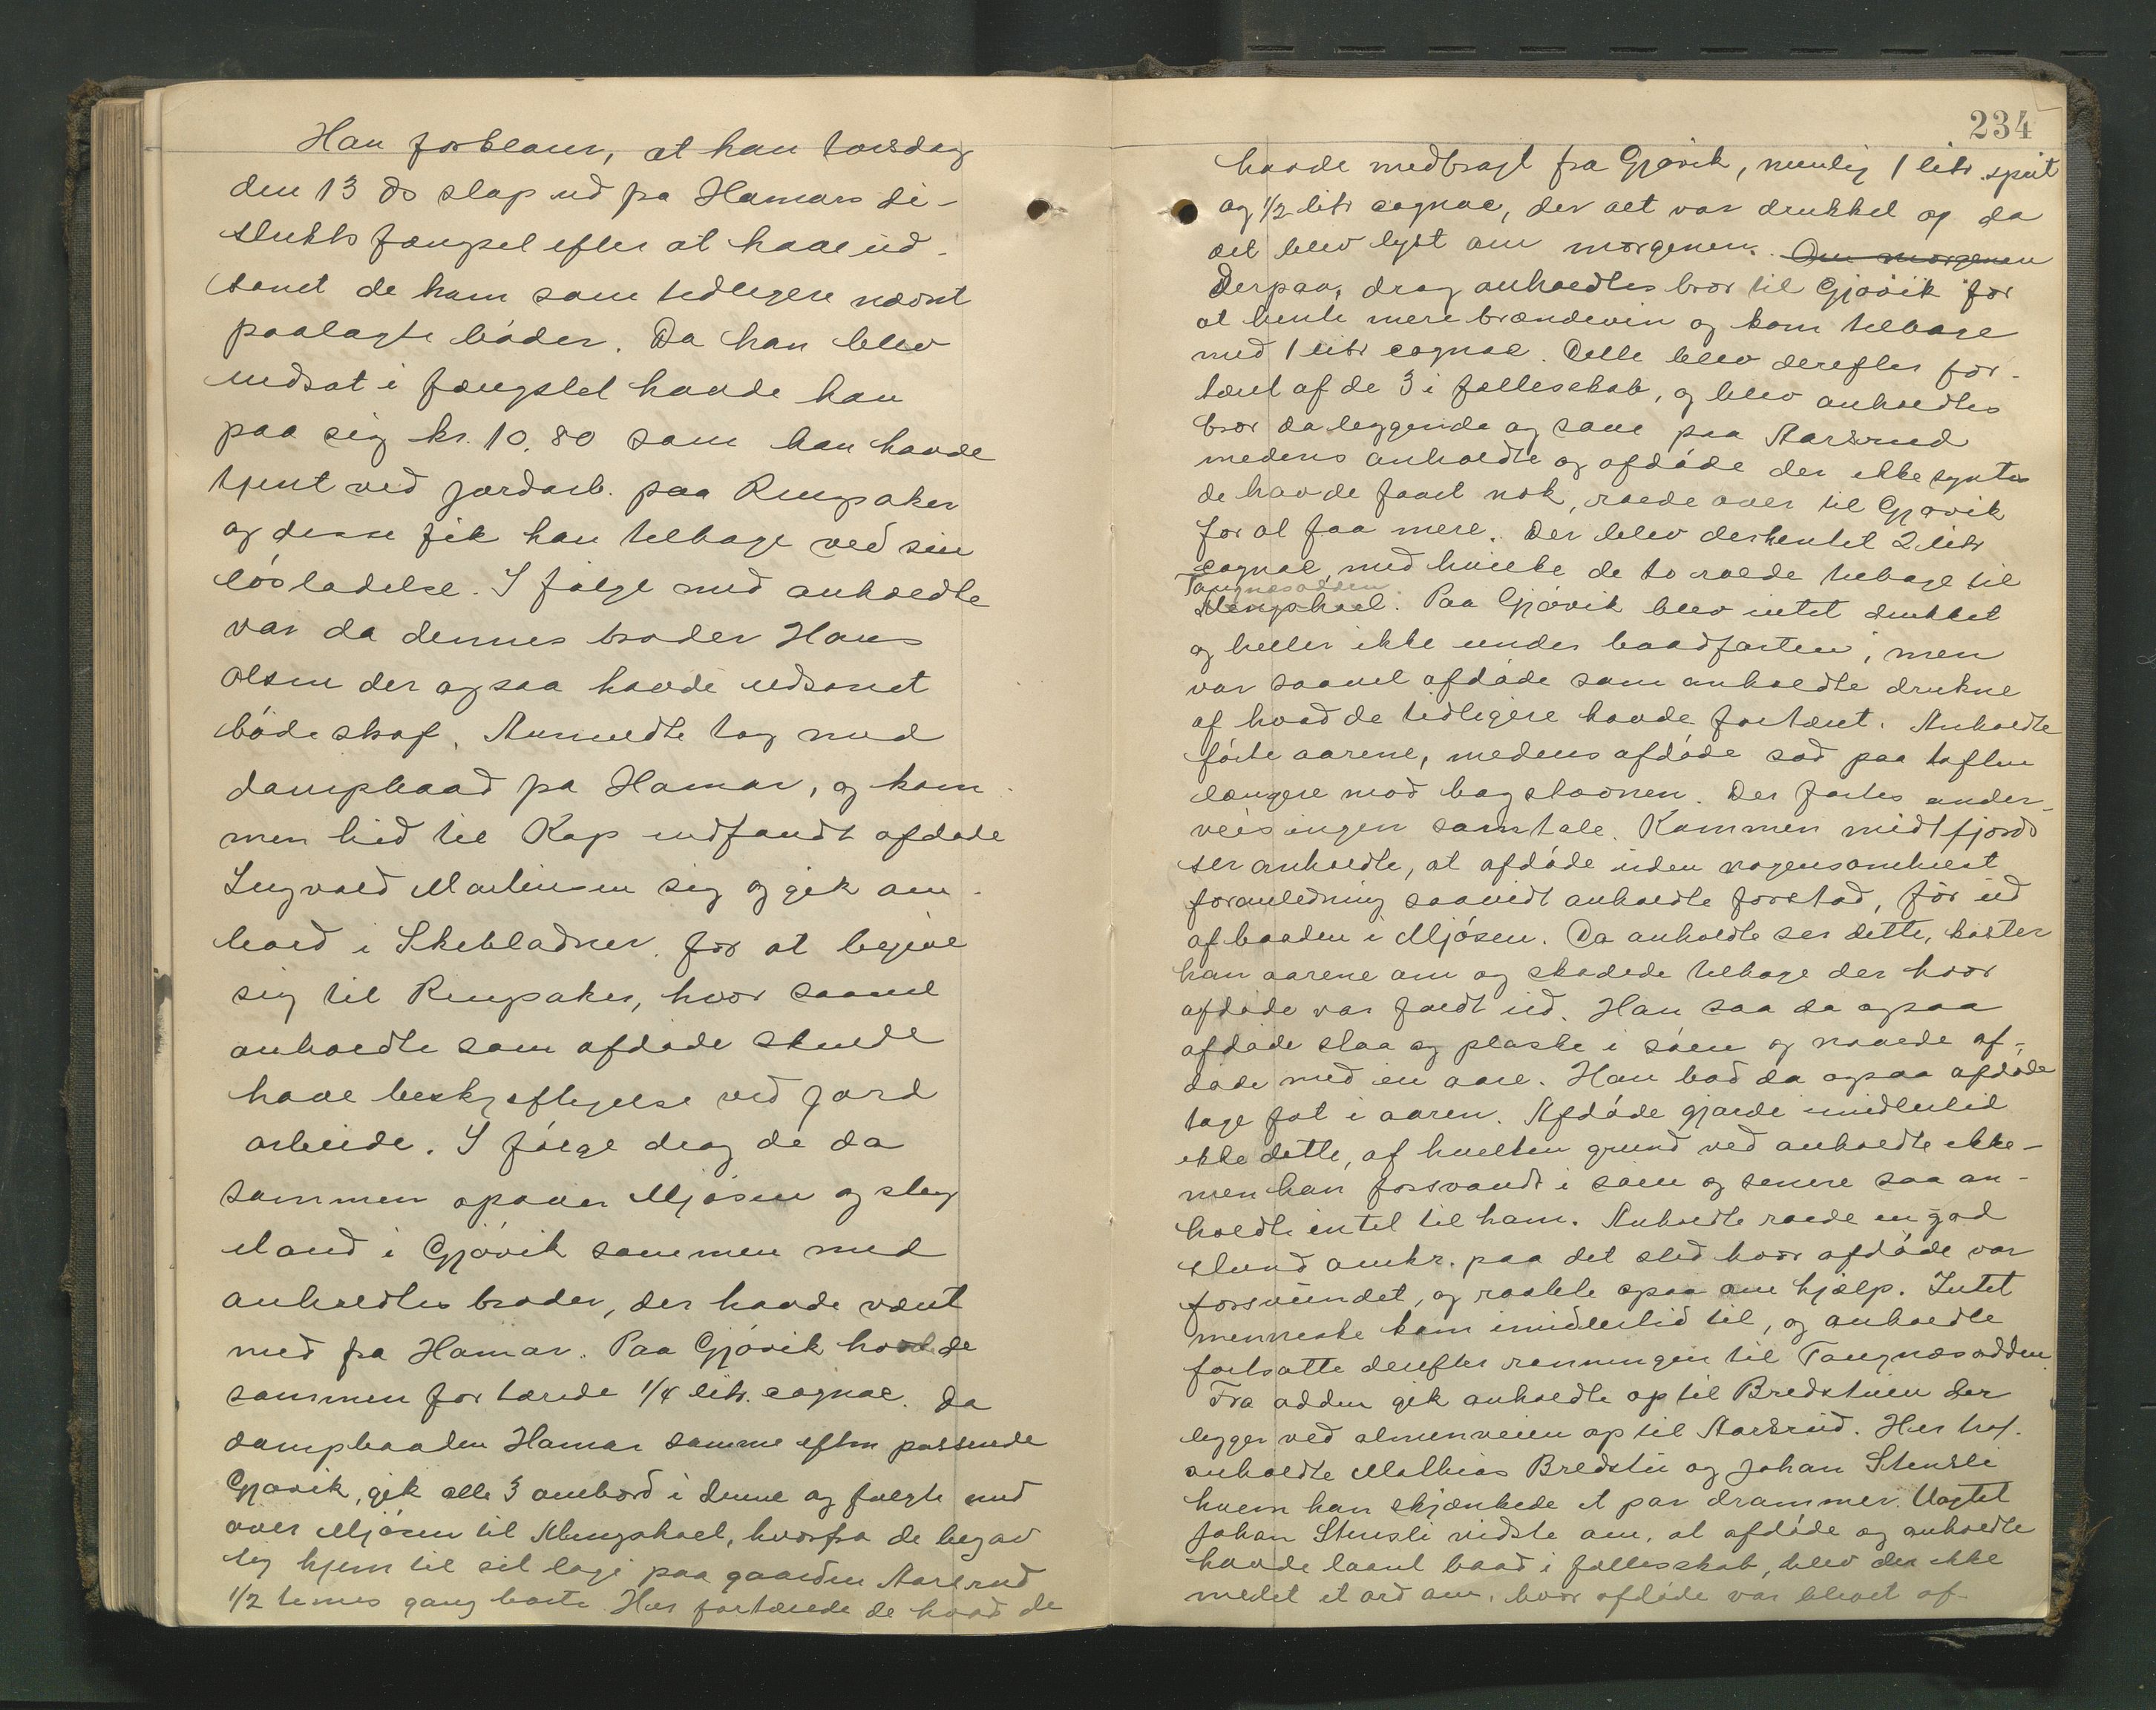 Han forklarer, at han torsdag
den 13 ds slap ud fra Hamars di-
strikts fængsel efter at have ud-
sonet de ham som tidligere nævnt
paalagte bøder. Da han blev
indsat i fængslet havde han
paa sig kr. 10,80 som han havde
tjent ved jordarb. paa Ringsaker
og disse fik han tilbage ved sin
løsladelse. I følge med anholdte
var da dennes broder Hans
Olsen der ogsaa havde udsonet
bødestraf. Anmeldte tog med
dampbaad fra Hamar, og kom-
men hid til Kap indfandt afdøde
Ingvald Martinsen sig og gik om-
bord i Skibladner for at begive
sig til Ringsaker, hvor saavel
anholdte som afdøde skulde
have beskjeftigelse ved jord
arbeide. I følge drog de da
sammen opover Mjøsen og steg
iland i Gjøvik sammen med
anholdtes broder, der havde været
med fra Hamar. Paa Gjøvik havde de
sammen fortæred 1/4 litr. cognac. Da
dampbaaden Hamar samme eftm passerede
Gjøvik, gik alle 3 ombord i denne og fulgte med
over Mjøsen til Ringshoel, hvorfra de begav
sig hjem til sit logi paa gaarden Aarsrud
1/2 times gang borte. Her fortærede de hvad de
234
havde medbragt fra Gjøvik, nemlig 1 litr sprit
og 1/2 litr cognac, der alt var drukket op da
det blev lyst om morgenen. Om morgenen
Derpaa, drog anholdtes bror til Gjøvik for
at hente mere brændevin og kom tilbage
med 1 litr cognac. Dette blev derefter for-
tæret af de 3 i fællesskab, og blev anholdtes
bror da liggende og sove paa Aarsrud
medens anholdte og afdøde der ikke syntes
de havde faaet nok, roede over til Gjøvik
for at faa mere. Der blev der hentet 2 litr
cognac, med hvilke de to roede tilbage til
Tangnesodden
Ringshoel. Paa Gjøvik blev intet drukket
og heller ikke under baadfarten, men
var saavel afdøde som anholdte drukne
af hvad de tidligere havde fortæret. Anholdte
førte aarene, medens afdøde sad paa toften
længere mod bagstavnen. Der førtes under-
veis ingen samtale. Kommen midtfjords
ser anholdte, at afdøde uden nogensomhelst
foranledning saavidt anholdte forstod, før ud
af baaden i Mjøsen. Da anholdte ser dette, kaster
han aarene om og skodede tilbage der hvor
afdøde var faldt ud. Han saa da ogsaa
afdøde slaa og plaske i søen og naaede af-
døde med en aare. Han bad da ogsaa afdøde
tage fat i aaren. Afdøde gjorde imidlertid
ikke dette, af hvilken grund ved anholdte ikke-
men han forsvandt i søen og senere saa an-
holdte intet til ham. Anholdte roede en god
stund omkr. paa det sted hvor afdøde var
forsvundet, og raabte ogsaa om hjælp. Intet
menneske kom imidlertid til, og anholdte
fortsatte derefter roningen til Tangnæsodden.
Fra odden gik anholdte op til Bredstuen der
ligger ved almenveien op til Aarsrud. Her traf.
anholdte Mathias Bredstu og Johan Stensli
hvem han skjænkede et par drammer. Uagtet
Johan Stensli vidste om, at afdøde og anholdte
havde laant baad i fællesskab, blev der ikke
mælet et ord om, hvor afdøde var blevet af